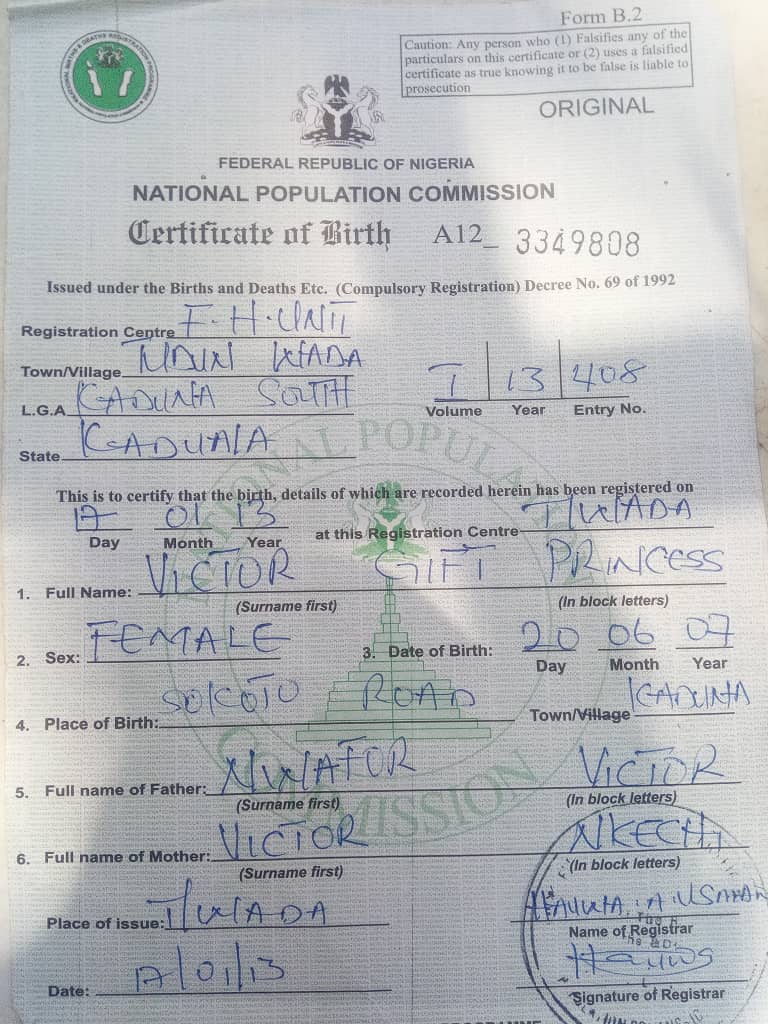 Form B.2
Caution: Any person who (1) Falsifies any of the
particulars on this certificate or (2) uses a falsified
certificate as true knowing it to be false is liable to
prosecution
ORIGINAL
FEDERAL REPUBLIC OF NIGERIA
NATIONAL POPULATION COMMISSION
Certificate of Birth A12_ 3349808
Issued under the Births and Deaths Etc. (Compulsory Registration) Decree No. 69 of 1992
Registration Centre F.H.UNIT
Town/Village WADA
L.G.A KADUNA SOUTH
I 13 408
Volume Year Entry No.
State KADUNA
This is to certify that the birth, details of which are recorded herein has been registered on
17 01 13 at this Registration Centre T/WADA
Day Month Year
1. Full Name: VICTOR GIFT PRINCESS
(Surname first) (In block letters)
2. Sex: FEMALE 3. Date of Birth: 20 06 07
Day Month Year
4. Place of Birth: SOKOTO ROAD Town/Village KADUNA
5. Full name of Father: NWAFOR VICTOR
(Surname first) (In block letters)
6. Full name of Mother: VICTOR NKECHI
(Surname first) (In block letters)
Place of issue: T/WADA HAUWA.A.USMAN
Name of Registrar
Date: 17/01/13
Signature of Registrar
NATIONAL POPULATION COMMISSION